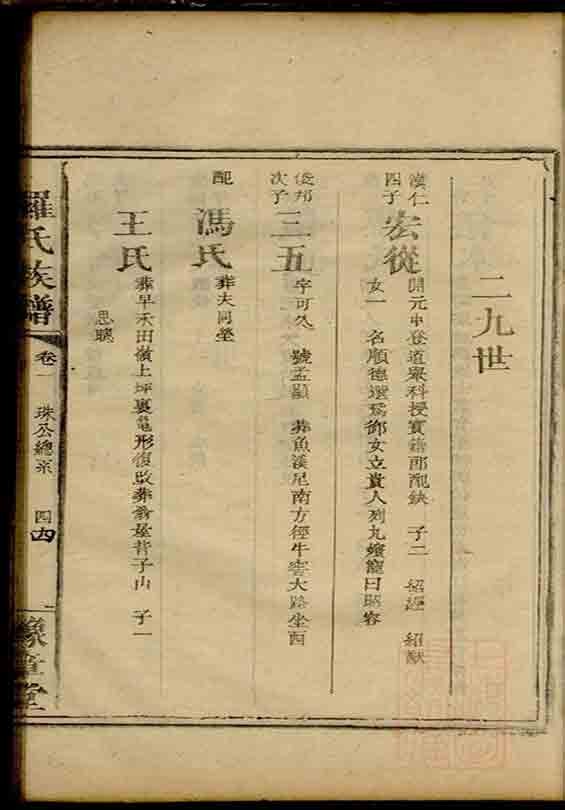 二九世
漢仁
四子
宏從
開元中登道察科授實錄郎配缺 子二 紹 紹猷
女一 名順德選為御女立貴人列九嬪寵曰昭容
俊邦
次子
三五
字可久 號孟顯 葬魚溪尾南方徑牛窖大路坐酉
配
馮氏
葬夫同塋
王氏
葬早禾田嶺上坪裏龜形復改葬翁屋背子山 子一
思聰
羅氏族譜
卷一
珠公總系
四四
豫章堂